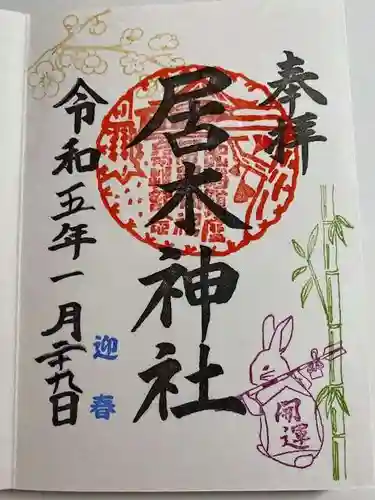 奉拝
居木神社
令和五年一月二十九日
迎春
開運